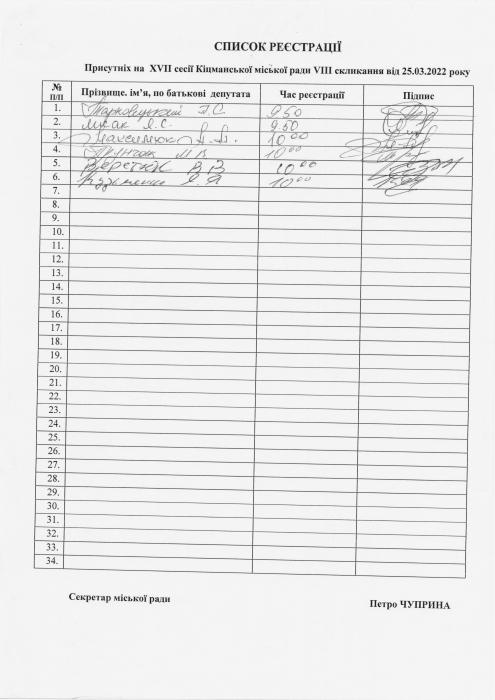 СПИСОК РЕЄСТРАЦІЇ
Присутніх на XVII сесії Кіцманської міської ради VIII скликання від 25.03.2022 року
№ П/П Прізвище. ім’я, по батькові депутата Час реєстрації Підпис
1. Тарновецький 9 50
2. Лусак Л.С. 9 50
3. Максимюк 10 00
4. 10 00
5. Веретюк В В 10 00
6. Кузьменко 10 00
7.
8.
9.
10.
11.
12.
13.
14.
15.
16.
17.
18.
19.
20.
21.
22.
23.
24.
25.
26.
27.
28.
29.
30.
31.
32.
33.
34.
Секретар міської ради Петро ЧУПРИНА